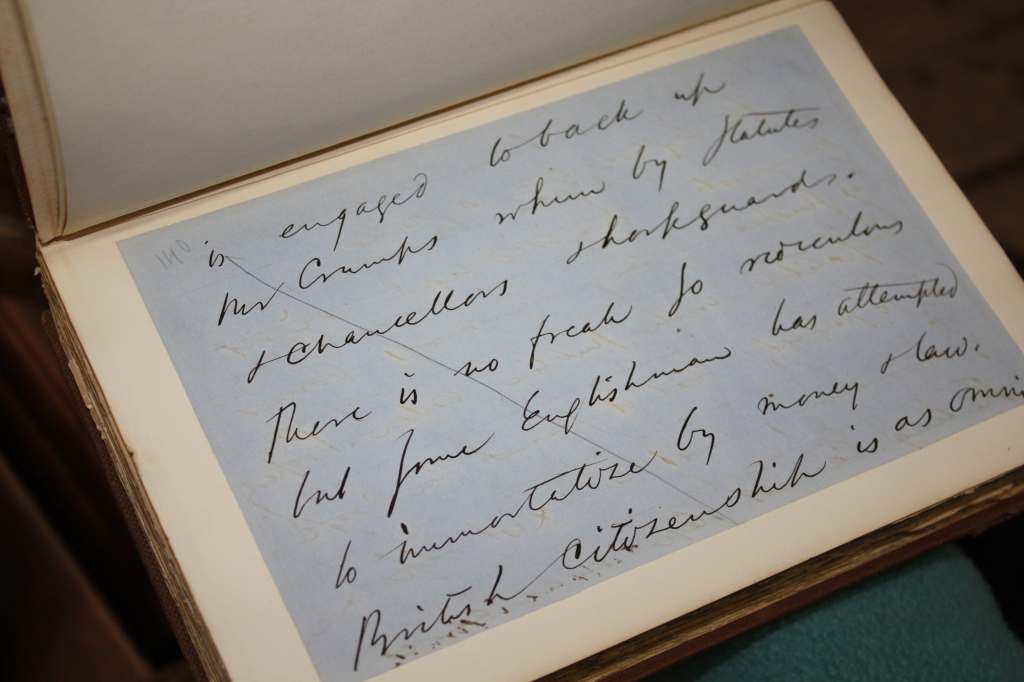 140
is engaged to back up
Mr Crumps whim by statutes
& chancellors & horseguards.
There is no freak so ridiculous
but some Englishman has attempted
to immortalize by money & law.
British citizenship is as omni